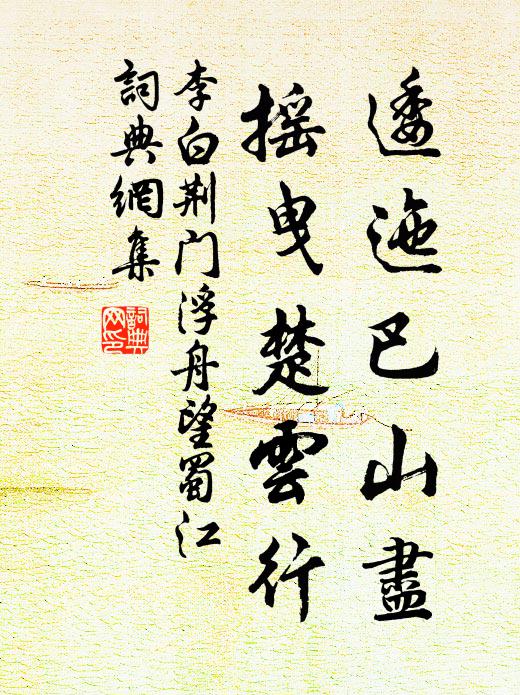 逶迤巴山盡
搖曳楚雲行
李白荆门浮舟望蜀江
詞典網集
詞典网印